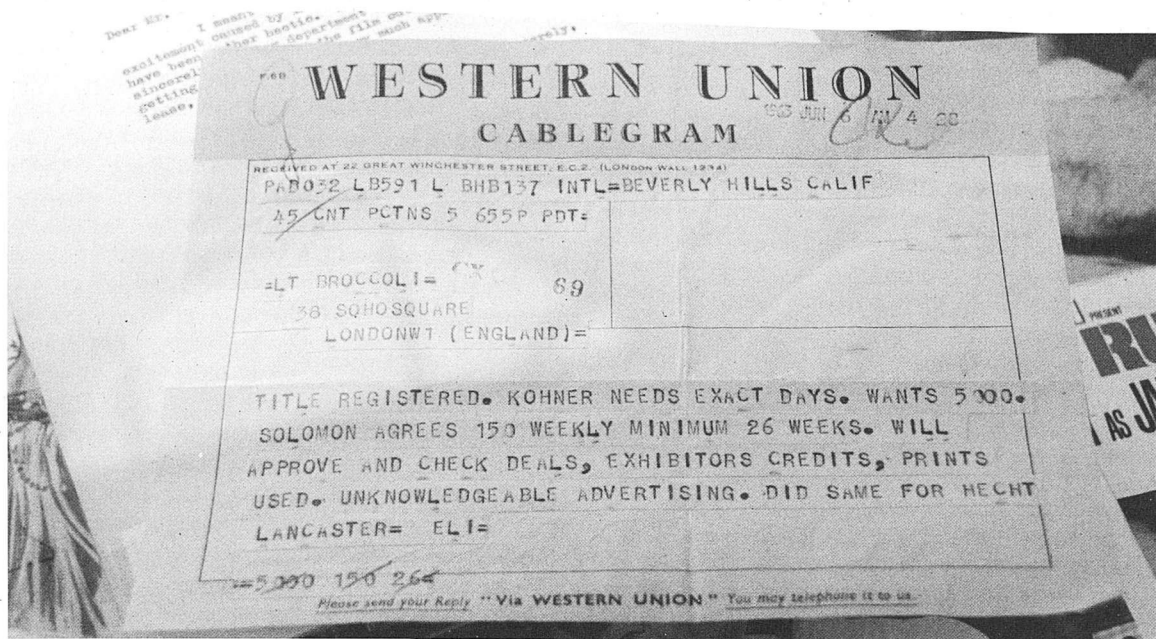 Dear Mr.
I meant
excitement caused by
have been rather hectic.
sincerely department
getting the film
lease, much app
rely.
F.6B
WESTERN UNION
CABLEGRAM
JUN 6 AM 4
RECEIVED AT 22 GREAT WINCHESTER STREET, E.C.2. (LONDON WALL 1234)
PAB032 LB591 L BHB137 INTL=BEVERLY HILLS CALIF
45 CNT PCTNS 5 655P PDT=
=LT BROCCOLI= CX 69
38 SOHOSQUARE
LONDONW1 (ENGLAND)=
TITLE REGISTERED. KOHNER NEEDS EXACT DAYS. WANTS 5000.
SOLOMON AGREES 150 WEEKLY MINIMUM 26 WEEKS. WILL
APPROVE AND CHECK DEALS, EXHIBITORS CREDITS, PRINTS
USED. UNKNOWLEDGEABLE ADVERTISING. DID SAME FOR HECHT
LANCASTER= ELI=
=5000 150 26=
Please send your Reply "Via WESTERN UNION" You may telephone it to us.
PRESENT
RU
AS JA